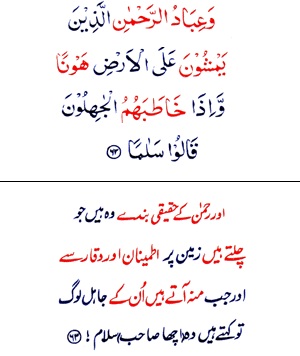 وَعِبَادُ الرَّحْمٰنِ الَّذِيْنَ
يَمْشُوْنَ عَلَى الْاَرْضِ هَوْنًا
وَّاِذَا خَاطَبَهُمُ الْجٰهِلُوْنَ
قَالُوْا سَلٰمًا ﴿۶۳﴾
اور رحمٰن کے حقیقی بندے وہ ہیں جو
چلتے ہیں زمین پر اطمینان اور وقار سے
اور جب منہ آتے ہیں اُن کے جاہل لوگ
تو کہتے ہیں وہ (اچھا صاحب) سلام! ﴿۶۳﴾